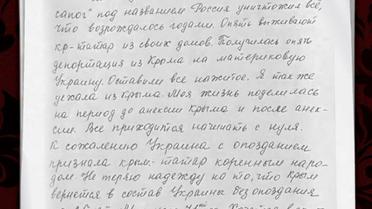 сапог" под названием Россия уничтожил всё,
что возрождалось годами. Опять выживают
кр-татар из своих домов. Получилась опять
депортация из Крыма на материковую
Украину. Оставили все нажитое. Я так же
уехала из Крыма. Моя жизнь поделилась
на период до анексии Крыма и после анек-
сии. Все приходится начинать с нуля.
К сожалению Украина с опозданием
признала крым-татар коренным наро-
дом. Не теряю надежду на то, что Крым
вернется в состав Украины без опоздания